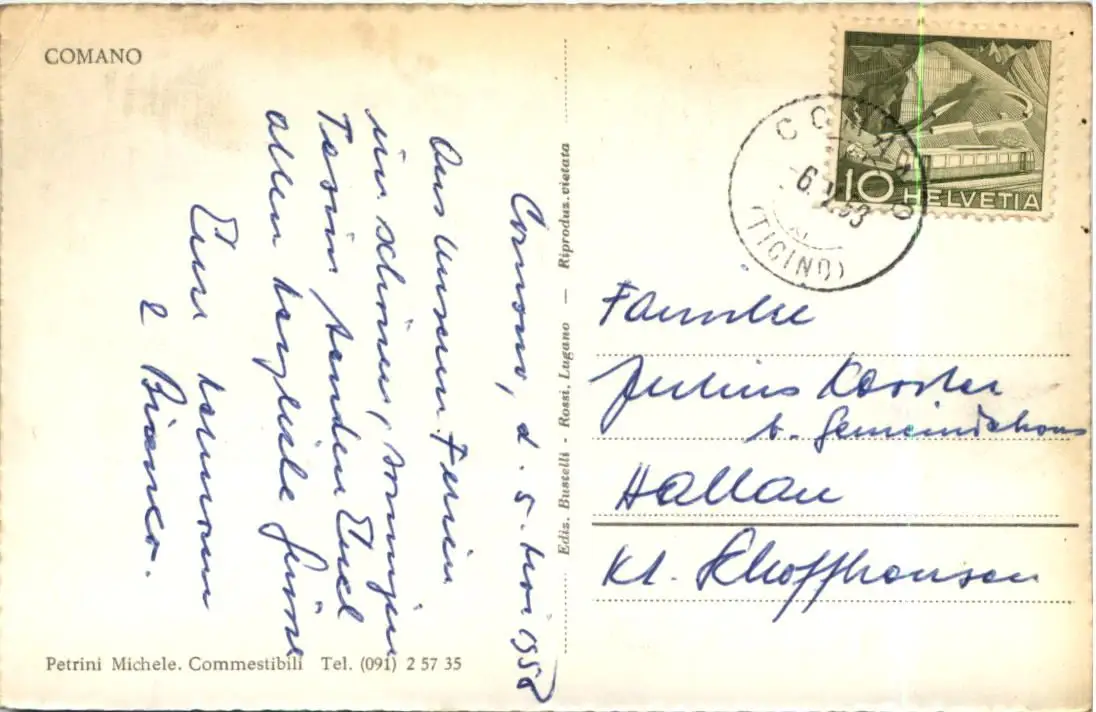 COMANO
Comano, d. 5. Mai 195
Aus unseren Ferien
im schönen, sonnigen
Tessin senden Euch
allen herzliche Grüsse
Eure
& Bianca.
Petrini Michele. Commestibili Tel. (091) 2 57 35
Ediz. Bustelli - Rossi, Lugano — Riproduz. vietata
10 HELVETIA
COMANO
-6.
53
(TICINO)
Familie
Julius
b. Gemeindehaus
Hallau
Kt. Schaffhausen